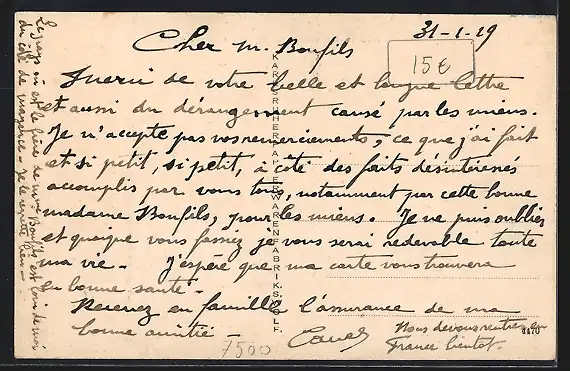 31-1-19
Cher M. Bonfils
15€
Merci de votre belle et longue lettre
et aussi du dérangement causé par les miens.
Je n'accepte pas vos remerciements, ce que j'ai fait
est si petit, si petit, à côté des faits désintéressés
accomplis par vous tous, notamment par cette bonne
madame Bonfils, pour les miens. Je ne puis oublier
et quoique vous fassiez je vous serai redevable toute
ma vie - J'espère que ma carte vous trouvera
en bonne santé -
Recevez en famille l'assurance de ma
bonne amitié -
Nous devons rentrer en
France bientôt.
7500
4470
KARLSRUHER WARENFABRIK
où est le frère de M. Bonfils est loin de moi
du côté de